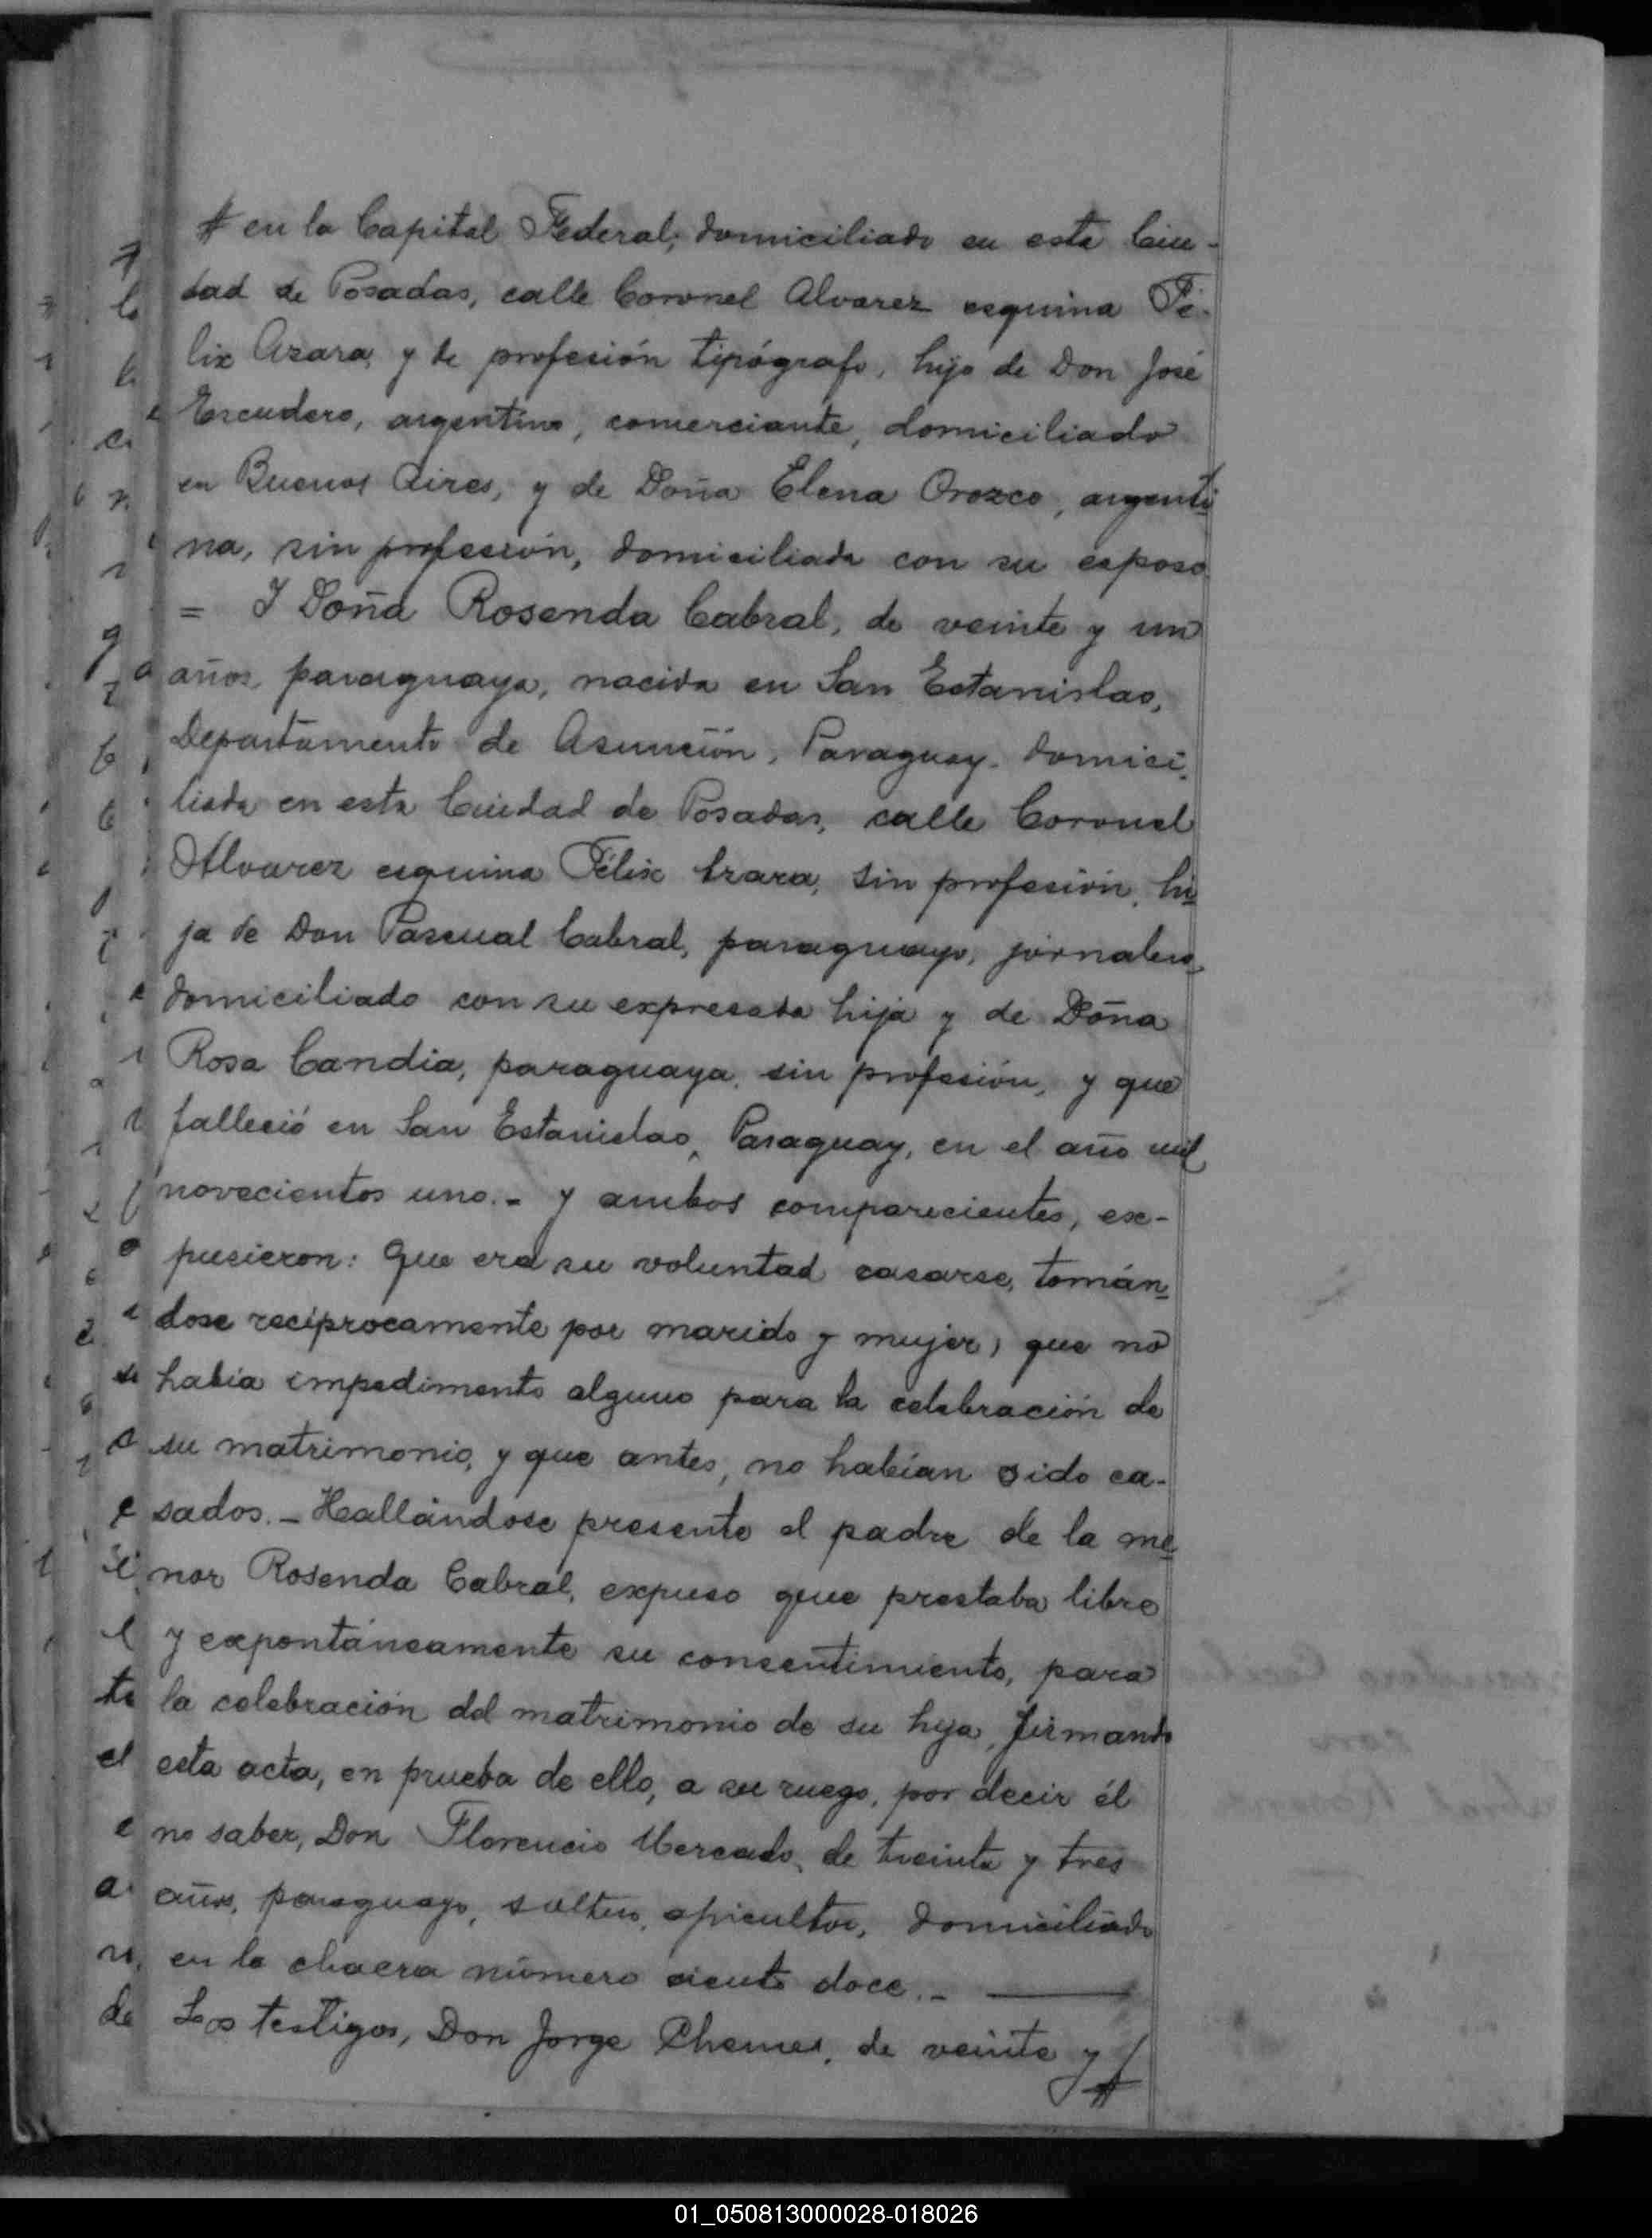 # en la Capital Federal, domiciliado en esta Ciu-
dad de Posadas, calle Coronel Alvarez esquina Fé-
lix Azara, y de profesión tipógrafo, hijo de Don José
Escudero, argentino, comerciante, domiciliado
en Buenos Aires, y de Doña Elena Orozco, argenti-
na, sin profesión, domiciliada con su esposo.
= I Doña Rosenda Cabral, de veinte y un
años, paraguaya, nacida en San Estanislao,
Departamento de Asunción, Paraguay, domici-
liada en esta Ciudad de Posadas, calle Coronel
Alvarez esquina Félix Azara, sin profesión, hi-
ja de Don Pascual Cabral, paraguayo, jornalero,
domiciliado con su expresada hija y de Doña
Rosa Candia, paraguaya, sin profesión, y que
falleció en San Estanislao, Paraguay, en el año mil
novecientos uno.- y ambos comparecientes, ex-
pusieron: Que era su voluntad casarse, tomán-
dose recíprocamente por marido y mujer, que no
había impedimento alguno para la celebración de
su matrimonio, y que antes, no habían sido ca-
sados.- Hallándose presente el padre de la me-
nor Rosenda Cabral, expuso que prestaba libre
y expontáneamente su consentimiento, para
la celebración del matrimonio de su hija, firmando
esta acta, en prueba de ello, a su ruego, por decir él
no saber, Don Florencio Mercado, de treinta y tres
años, paraguayo, soltero, apicultor, domiciliado
en la chacra número ciento doce.-
Los testigos, Don Jorge Chemes, de veinte y #
01_050813000028-018026